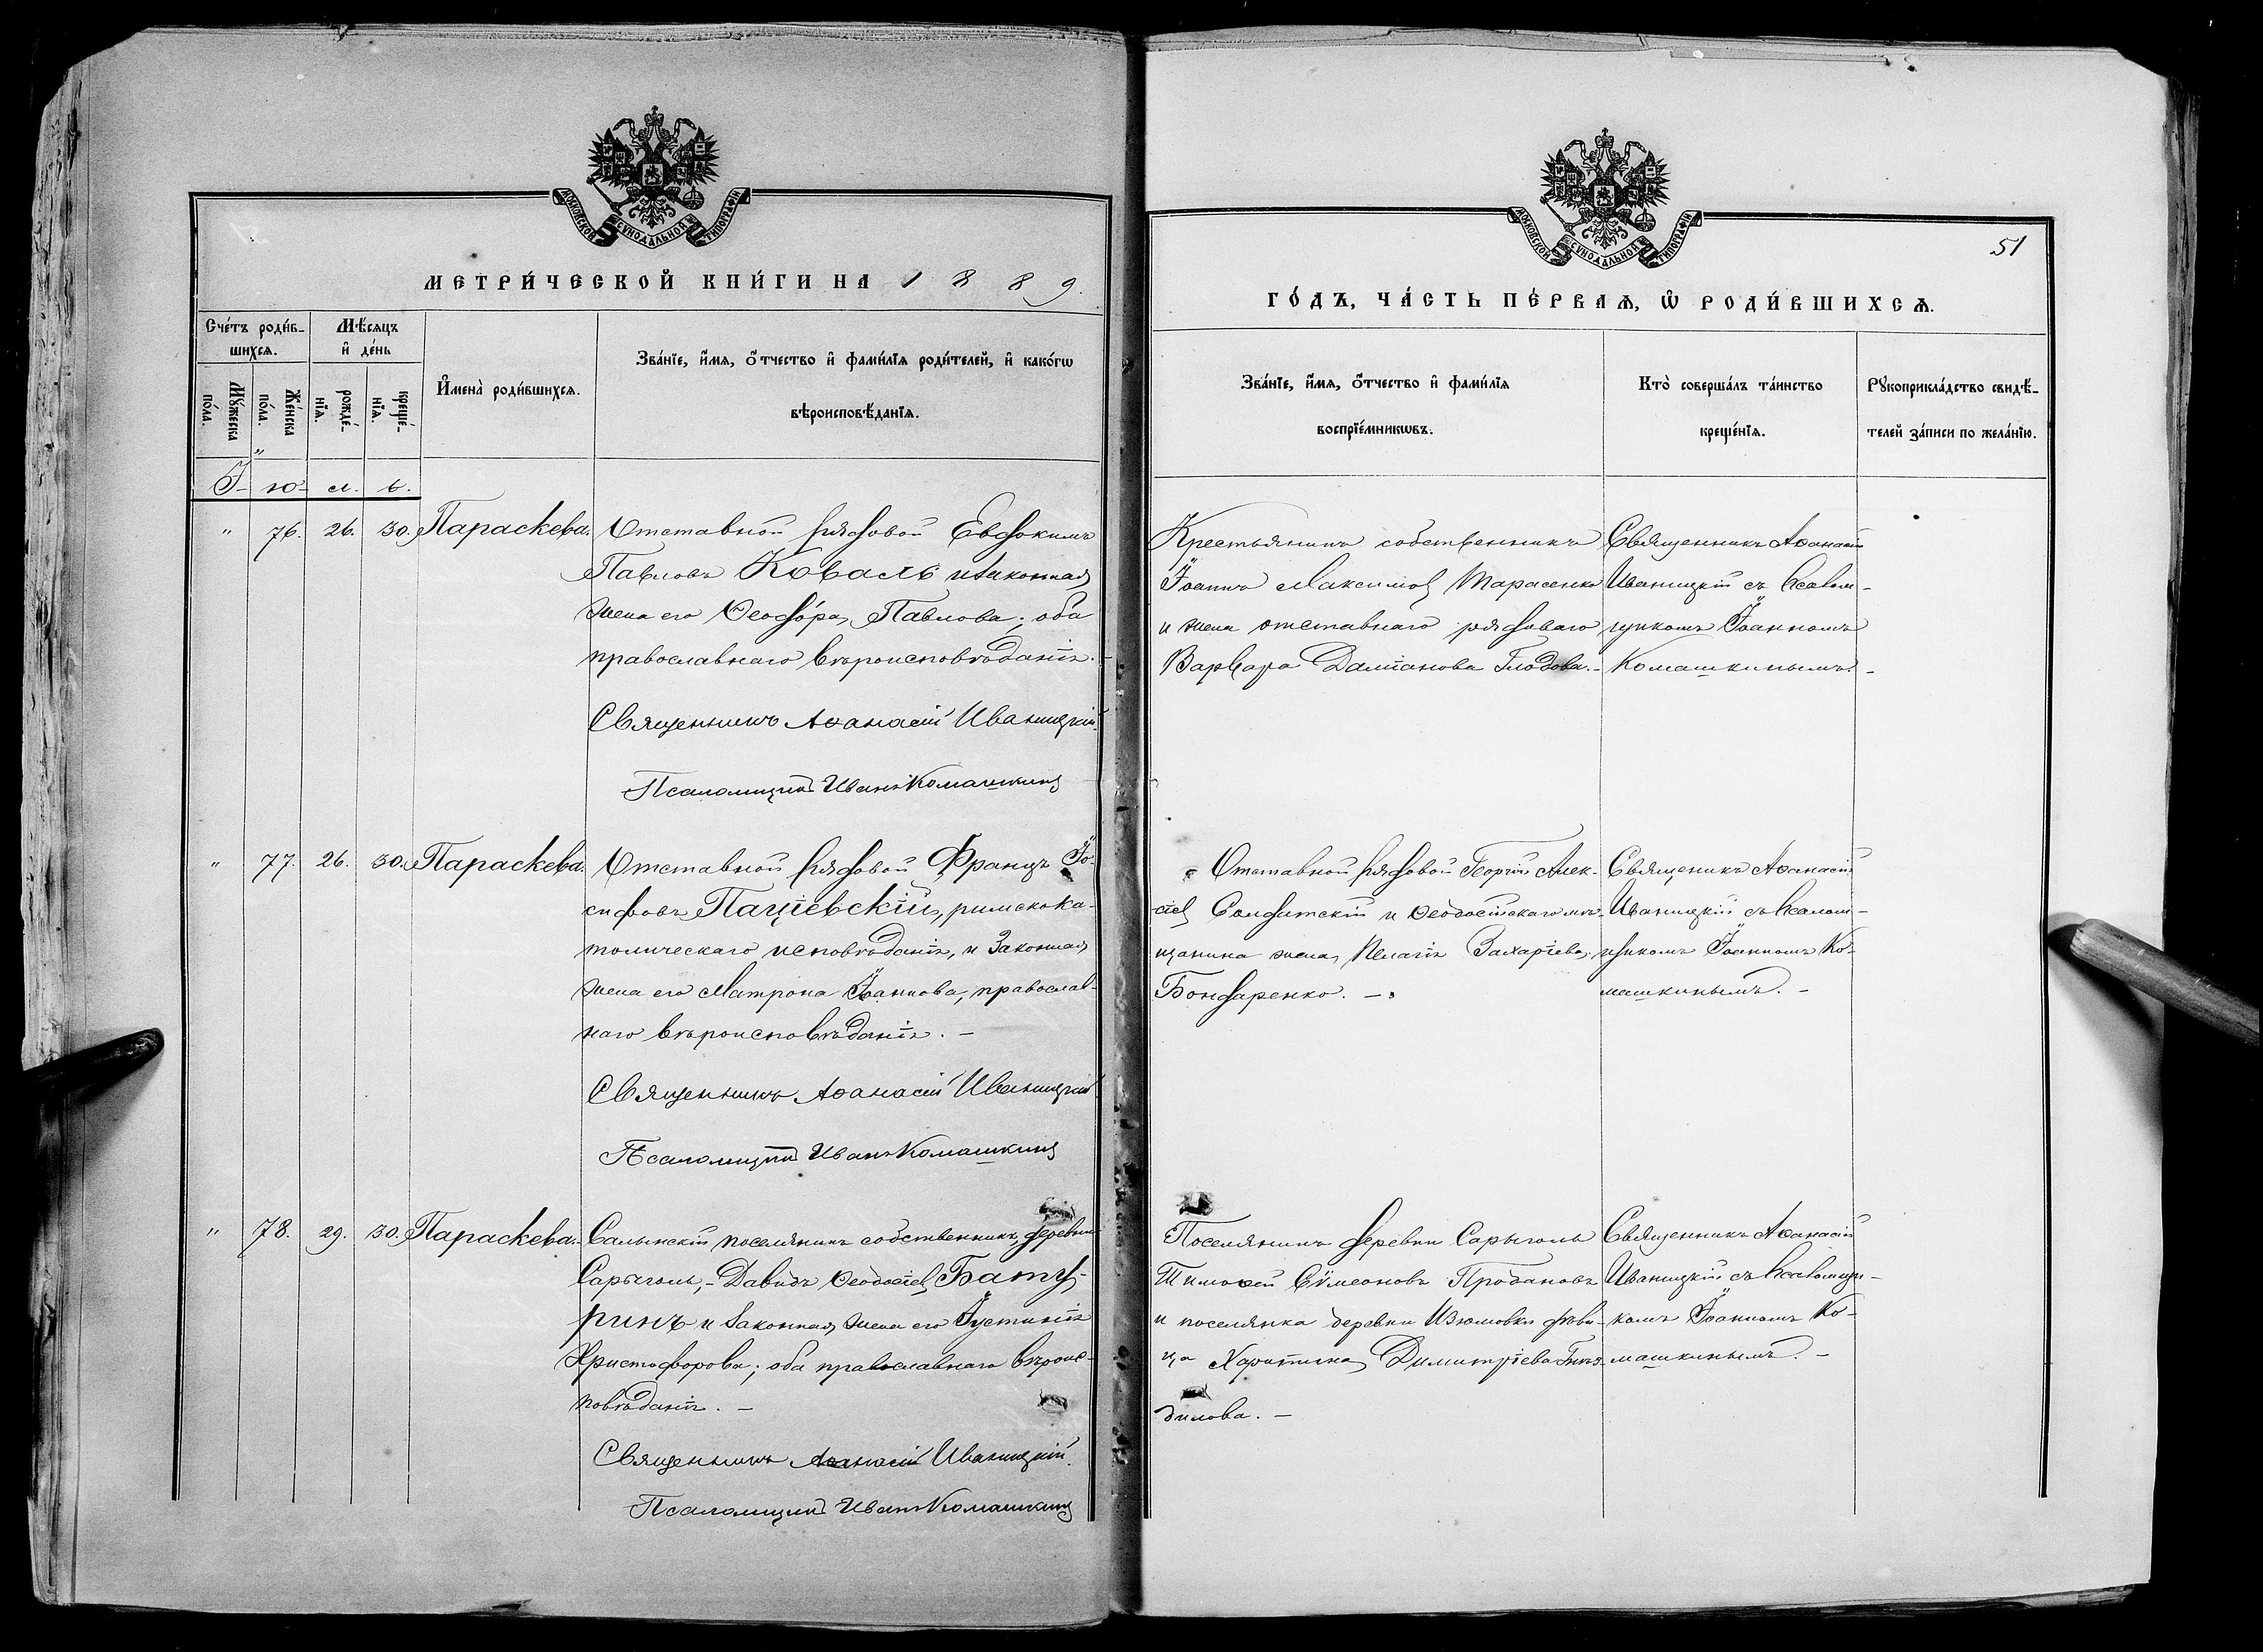 МОСКОВСКОЙ СУНОДАЛЬНОЙ ТИПОГРАФІИ
МЕТРИ́ЧЕСКОЙ КНИ́ГИ НА 1889.
Сче́тъ роди́в-
шихсѧ.
Мѣ́сѧцъ
и҆ де́нь
Мꙋ́жеска
по́ла.
Же́нска
по́ла.
рожде́-
нїѧ.
креще́-
нїѧ.
И҆мена̀ роди́вшихсѧ.
Зва́нїе, и҆́мѧ, ѻ҆́тчество и҆ фами́лїѧ роди́телей, и҆ како́гѡ
вѣроисповѣ́данїѧ.
І- ю- л. ь.
" 76. 26. 30. Параскева. Отставной рядовой Евдокимъ
Павловъ Коваль и законная
жена его Ѳеодо́ра Павлова; оба
православнаго вѣроисповѣданія.
Священникъ Аѳанасій Иваницкій.
Псаломщикъ Иванъ Комашкинъ
" 77. 26. 30. Параскева. Отставной рядовой Францъ Іо-
сифовъ Пацѣевскій, римскока-
толическаго исповѣданія, и законная
жена его Матрона Іоаннова, православ-
наго вѣроисповѣданія. -
Священникъ Аѳанасій Иваницкій
Псаломщикъ Иванъ Комашкинъ
" 78. 29. 30. Параскева. Салынскій поселянинъ собственникъ, деревни
Сарыголь, - Давидъ Ѳеодосіевъ Бату-
ринъ и законная жена его Іустинія
Христофорова; оба православнаго вѣроис-
повѣданія. -
Священникъ Аѳанасій Иваницкій.
Псаломщикъ Иванъ Комашкинъ
МОСКОВСКОЙ СУНОДАЛЬНОЙ ТИПОГРАФІИ
51
ГО́ДЪ, ЧА́СТЬ ПЕ́РВАѦ, Ѡ҆ РОДИ́ВШИХСѦ.
Зва́нїе, и҆́мѧ, ѻ҆́тчество и҆ фами́лїѧ
воспрїе́мникѡвъ.
Кто̀ соверша́лъ та́инство
креще́нїѧ.
Рꙋкоприкла́дство свидѣ́-
телей за́писи по жела́нїю.
Крестьянинъ собственникъ
Іоаннъ Максимовъ Тарасенко
и жена отставнаго рядоваго
Варвара Даміанова Глодова. -
Священникъ Аѳанасій
Иваницкій съ псалом-
щикомъ Іоанномъ
Комашкинымъ. -
Отставной рядовой Георгій Алек-
сіевъ Солдатскій и Ѳеодосійскаго мѣ-
щанина жена Пелагія Захаріева
Бондаренко. -
Священикъ Аѳанасій
Иваницкій съ псалом-
щикомъ Іоанномъ Ко-
машкинымъ. -
Поселянинъ деревни Сарыголь
Тимоѳей Сѷмеоновъ Продановъ
и поселянка деревни Изюмовки дѣви-
ца Харитина Димитріева Гня-
дилова. -
Священникъ Аѳанасій
Иваницкій съ псаломщи-
комъ Іоанномъ Ко-
машкинымъ. -